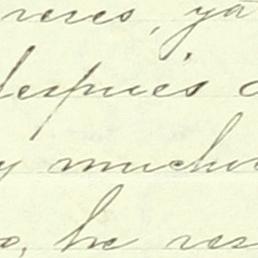 reres, ya
después
y mucho
o, he res